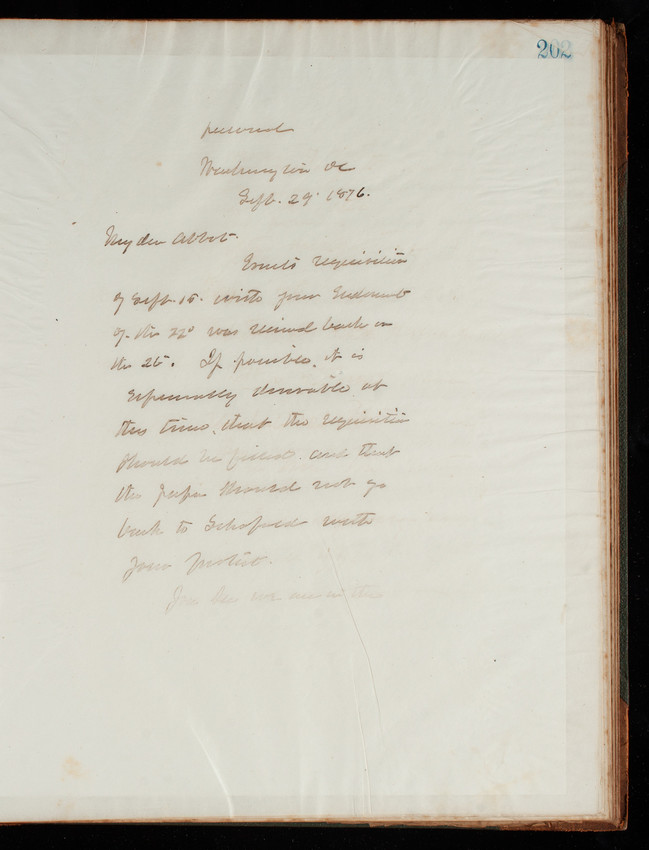 202
personal
Washington DC
Sept. 29. 1876.
My dear Abbot.
Ernst's requisition
of Sept. 15. with your Endorsement
of the 22d was received back on
the 25. If possible, it is
Especially desirable at
this time, that the requisition
should be filled and that
the paper should not go
back to Schofield with
your protest.
You see we are in the